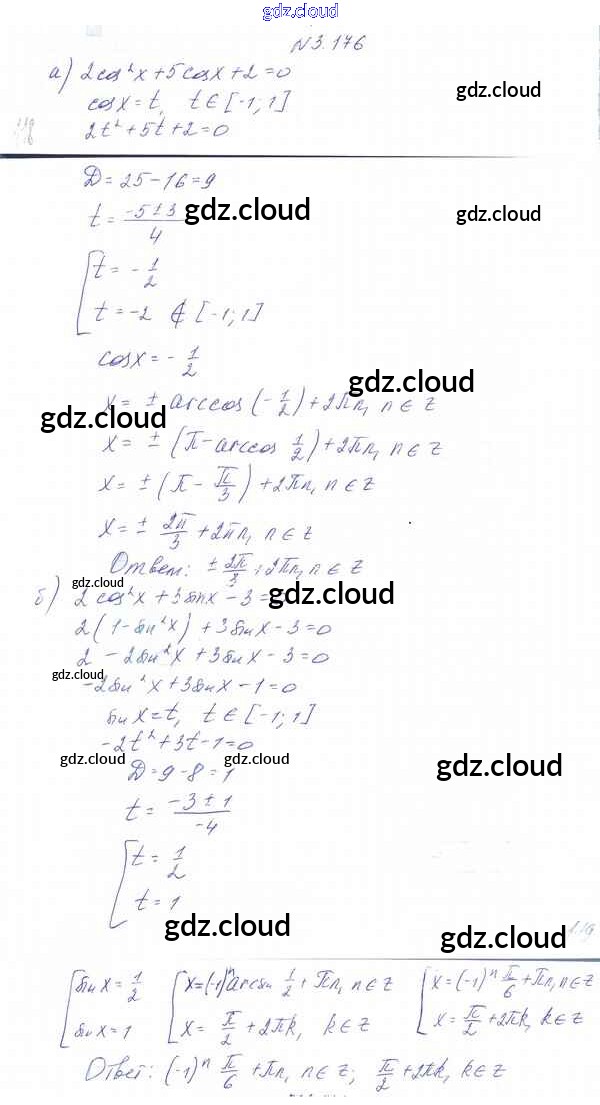 gdz.cloud
N3.176
а) 2cos²x + 5cosx + 2 = 0
gdz.cloud
cosx = t, t ∈ [-1; 1]
2t² + 5t + 2 = 0
D = 25 - 16 = 9
t = (-5 ± 3)/4
gdz.cloud
gdz.cloud
[ t = -1/2
t = -2 ∉ [-1; 1]
cosx = -1/2
gdz.cloud
x = ± arccos(-1/2) + 2πn, n ∈ Z
gdz.cloud
x = ± (π - arccos 1/2) + 2πn, n ∈ Z
x = ± (π - π/3) + 2πn, n ∈ Z
x = ± 2π/3 + 2πn, n ∈ Z
Ответ: ± 2π/3 + 2πn, n ∈ Z
gdz.cloud
б) 2cos²x + 3sinx - 3 =
gdz.cloud
2(1 - sin²x) + 3sinx - 3 = 0
2 - 2sin²x + 3sinx - 3 = 0
gdz.cloud
-2sin²x + 3sinx - 1 = 0
sinx = t, t ∈ [-1; 1]
-2t² + 3t - 1 = 0
gdz.cloud
gdz.cloud
gdz.cloud
D = 9 - 8 = 1
t = (-3 ± 1)/-4
[ t = 1/2
t = 1
gdz.cloud
gdz.cloud
[ sinx = 1/2 [ x = (-1)ⁿ arcsin 1/2 + πn, n ∈ Z [ x = (-1)ⁿ π/6 + πn, n ∈ Z
sinx = 1 x = π/2 + 2πk, k ∈ Z x = π/2 + 2πk, k ∈ Z
Ответ: (-1)ⁿ π/6 + πn, n ∈ Z; π/2 + 2πk, k ∈ Z